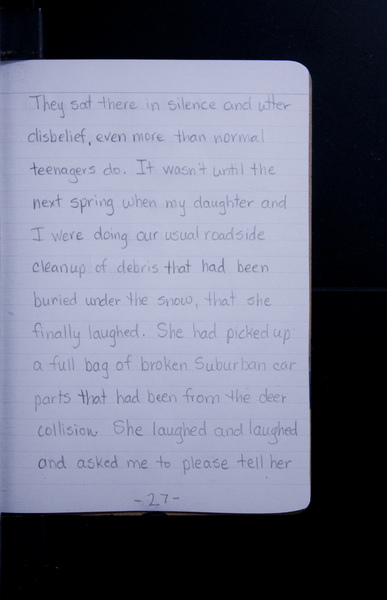 They sat there in silence and utter
disbelief, even more than normal
teenagers do. It wasn't until the
next spring when my daughter and
I were doing our usual roadside
cleanup of debris that had been
buried under the snow, that she
finally laughed. She had picked up
a full bag of broken Suburban car
parts that had been from the deer
collision. She laughed and laughed
and asked me to please tell her
-27-